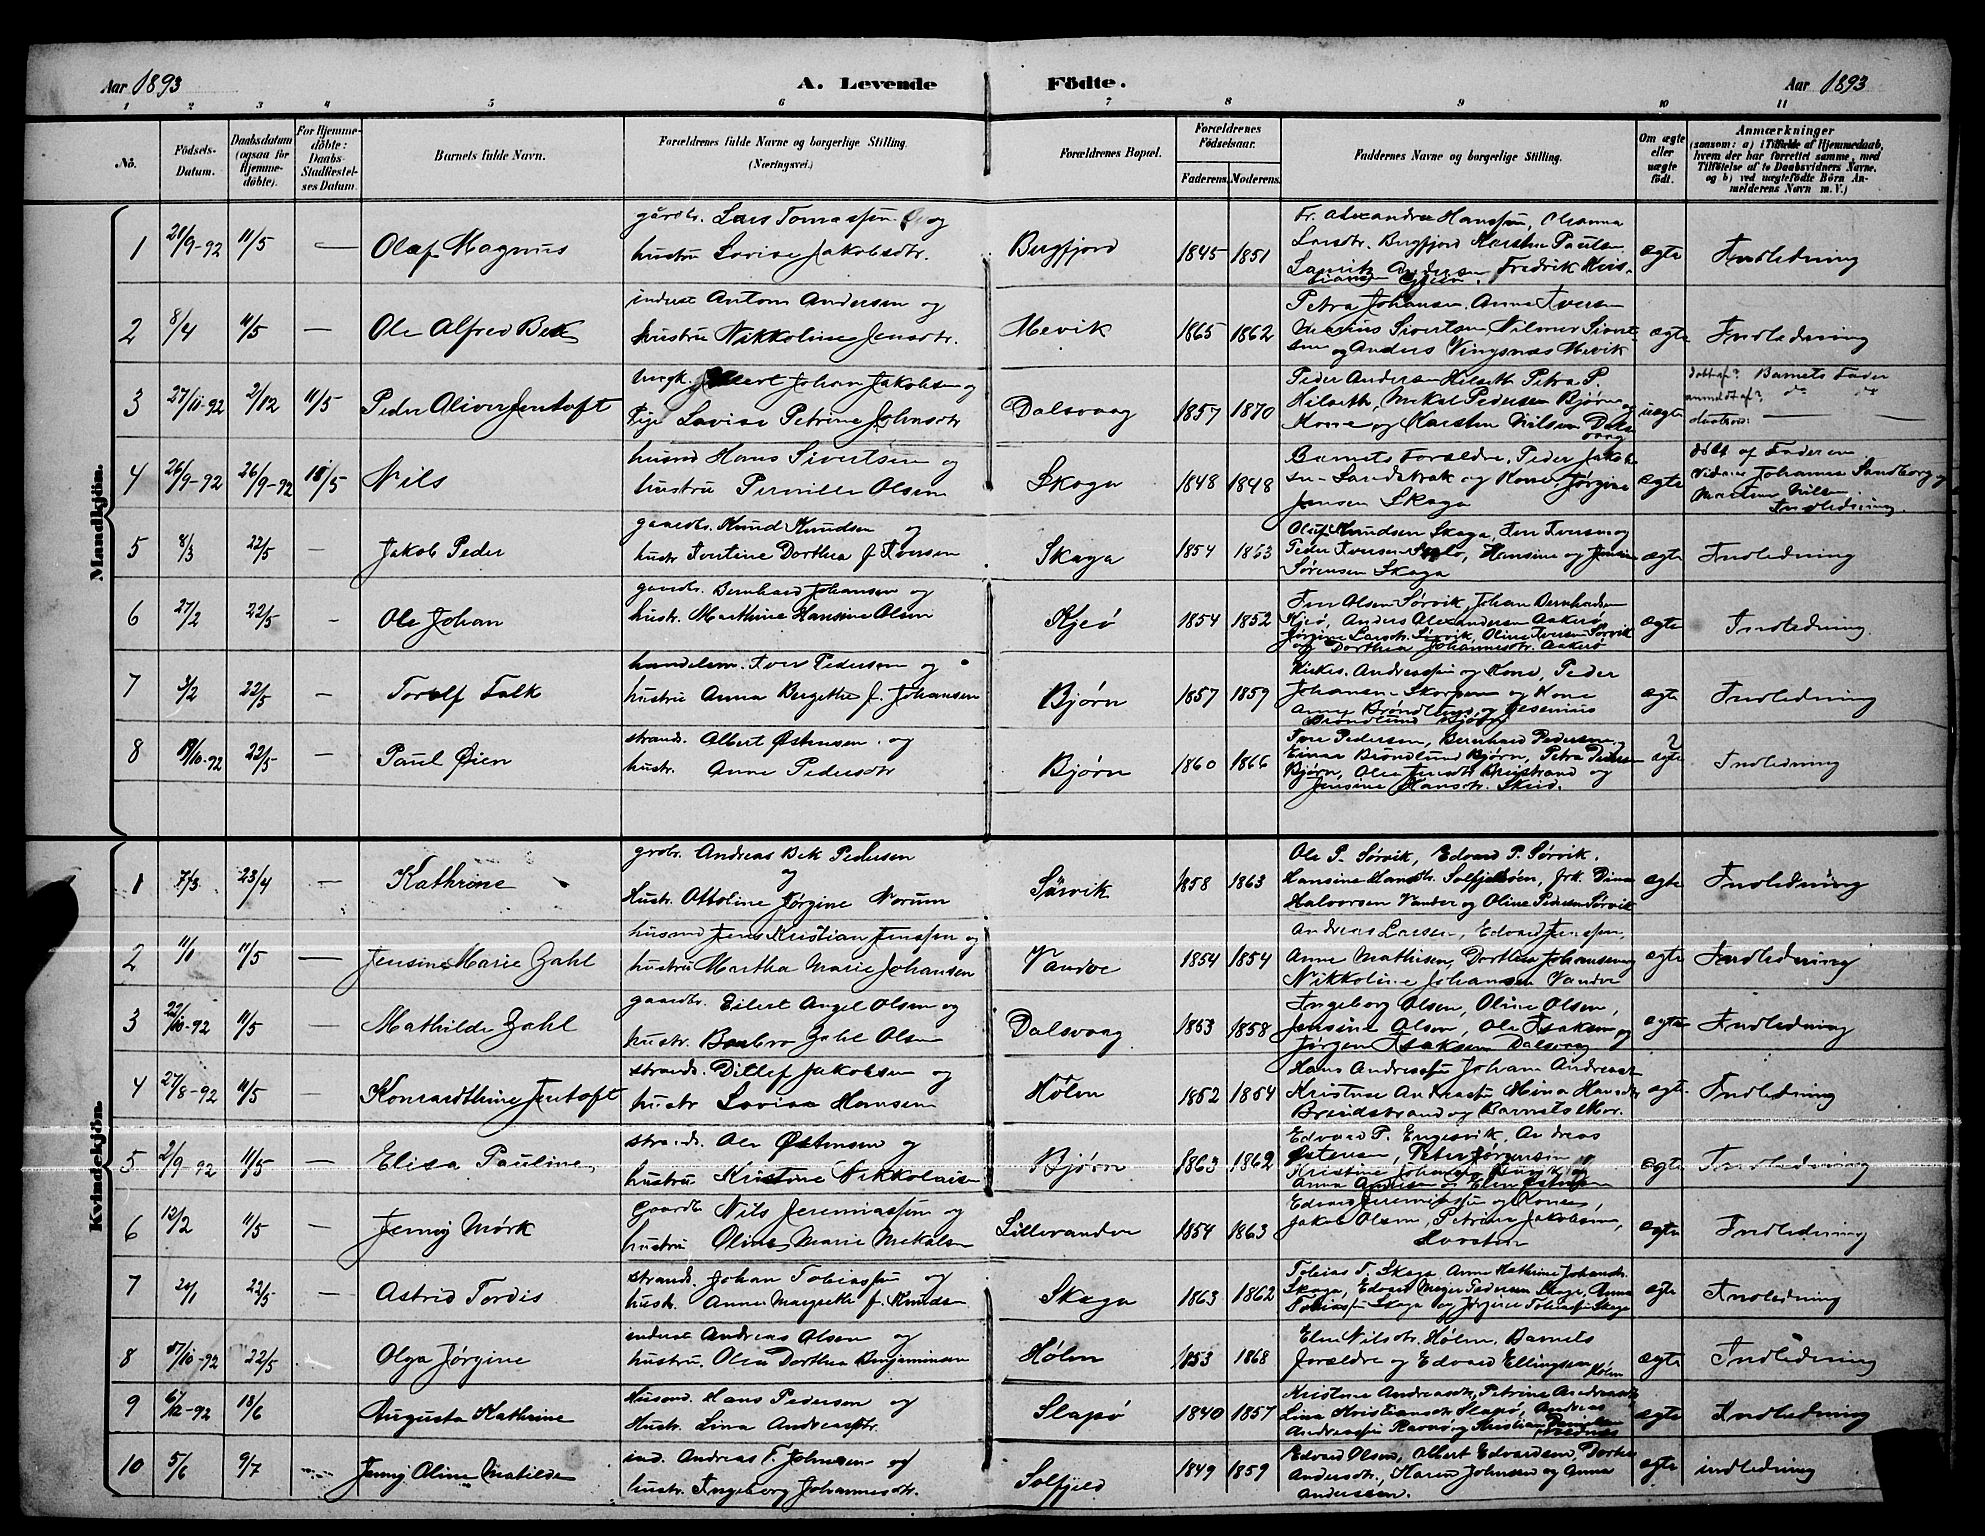 Aar 1893 A. Levende Födte. Aar 1893
1 2 3 4 5 6 7 8 9 10 11
Nö. Födsels-Datum. Daabsdatum (ogsaa for Hjemme-döbte). For Hjemme-döbte: Daabs-Stadfæstel-ses Datum. Barnets fulde Navn. Forældrenes fulde Navne og borgerlige Stilling. (Næringsvei.) Forældrenes Bopæl. Forældrenes Födselsaar. Faderens. Moderens. Faddernes Navne og borgerlige Stilling. Om ægte eller uægte födt. Anmærkninger (saasom: a) i Tilfælde af Hjemmedaab, hvem der har forrettet samme, med Tilföielse af to Daabsvidners Navne, og b) ved uægtefödte Börn An-melderens Navn m. V.)
Mandkjön.
1 21/9-92 11/5 — Olaf Magnus gårdbr. Lars Tomassen og
hustru Lovise Jakobsdtr. Bergfjord 1845 1851 Fr. Alexander Hanssen, Oleanna
Larsdtr. Bergfjord Karsten Paulsen
Fredrik Kris- ægte Indledning
2 8/4 11/5 — Ole Alfred Bek inderst Anton Andersen og
hustru Nikkoline Jensdtr. Mevik 1865 1862 Petra Johansen. Anne Iversen
Sivertsen, Nilmer Sivert-
sen og Anders Vingsnæs Mevik ægte Indledning
3 27/11-92 2/12 11/5 Peder Oliver Jentoft ungk. Johan Jakobsen og
Pige Lovise Petrine Johnsdtr Dalsvaag 1857 1870 Peder Andersen Hilseth Petra P.
Hilseth, Mekal Pedersen Bjørn og
Kone og Karsten Nilsen Dals-
vaag uægte døbt af? Barnets Fader
anmeldt af? do do
4 26/9-92 26/9-92 18/5 Nils husmd Hans Sivertsen og
hustru Pernille Olsen Skaga 1848 1848 Barnets Forældre, Peder Jakob-
sen Sandstrak og Kone, Jørgine
Jensen Skaga ægte døbt af Faderen
Vidner Johannes Sandberg og
Martin Nilsen
Indledning.
5 8/3 22/5 — Jakob Peder gaardbr. Knud Knudsen og
hustr. Dorthea f. Iversen Skaga 1854 1863 Oluf Knudsen Skaga, Iver Iversen og
Peder Iversen Hansine og Jensine
Sørensen Skaga ægte Indledning
6 27/2 22/5 - Ole Johan gaardbr. Bernhard Johansen og
hustr. Marthine Hansine Olsen Kjeø 1854 1852 Iver Olsen Sørvik, Johan Bernhardsen
Kjeø, Anders Alexandersen Aakerø
Jørgine Larsdtr. Sørvik, Oline Iversen Sørvik
og Dorthea Johannesdtr. Aakerø ægte Indledning.
7 3/2 22/5 — Torolf Falk handelsm. Iver Pedersen og
hustru Anna Bergethe f. Johansen Bjørn 1857 1859 Andreassen og Kone, Peder
Johansen Skorpen og Kone
Anne Brøndlund og Jesenius
Brøndlund Bjørn ægte Indledning
8 19/10-92 22/5 — Paul Øien strands. Albert Østensen og
hustr. Anne Pedersdtr Bjørn 1860 1866 Iver Pedersen, Bernhard Pedersen,
Einar Brøndlund Bjørn, Petra Pedersen
Bjørn, Breistrand og
Jensine Hansdtr. Skeid. ægte ? Indledning
Kvindekjön.
1 7/3 23/4 — Kathrine grdbr. Andreas Bek Pedersen
og
hustr. Ottoline Jørgine Norum Sørvik 1858 1863 Ole P. Sørvik, Edvard P. Sørvik.
Hansine Hansdtr. Solfjeldsøen, Dina
Halvorsen Vandve og Oline Pedersen Sørvik ægte Indledning
2 11/1 11/5 — Jensine Marie Zahl husmd Jens Kristian Jenssen og
hustru Martha Marie Johansen Vandve 1854 1854 Andreas Larsen, Edvard Jenssen,
Anne Mathisen, Dorthea Johansen og
Nikkoline Johansen Vandve ægte Indledning
3 22/10-92 11/5 — Mathilde Zahl gaardbr. Eilert Angel Olsen og
hustr. Barbro Zahl Olsen Dalsvaag 1863 1858 Ingeborg Olsen, Oline Olsen,
Jensine Olsen, Ole Isaksen og
Jørgen Isaksen Dalsvaag ægte Indledning
4 27/8-92 11/5 — Konradthine Jentoft strands. Ditlef Jakobsen og
hustr Lovise Hansen Hölen 1852 1854 Hans Andreassen Johan Andreass.
Kristine Andreassen Mina Hansdtr
Breidstrand og Barnets Mor. ægte. Indledning
5 2/9-92 11/5 — Elisa Pauline strands. Ole Østensen og
hustru Kristine Nikkolaisen Bjørn 1863 1862 Edvard P. Engesvik, Andreas
Østensen, Peter Jørgensen
Kristine Johansen
Anna Andersen og Elen Østensen ægte Indledning
6 12/2 11/5 — Jenny Mörk Gaardb. Nils Jeremiassen og
hustru Oline Marie Mekalsen Lillevandve 1854 1863 Edvard Jeremiassen og Kone,
Jakob Olsen, Petrine Jakobsen,
ægte Indledning
7 24/1 22/5 — Astrid Tordis strands. Johan Tobiassen og
hustr. Anne Margrethe f. Knudsen Skaga 1863 1862 Tobias T. Skaga Anne Kathrine Johansdtr.
Skaga, Edvard Meyer Pedersen Skaga, Anna
Tobiassen Skaga og Jørgine Tobiassen Skaga ægte Indledning
8 17/10-92 22/5 — Olga Jørgine inderst Andreas Olsen og
hustru. Olea Dorthea Benjaminsen Hølen 1853 1868 Elen Nilsdtr. Hølen, Barnets
forældre og Edvard Ellingsen
Hølen ægte Indledning
9 6/12-92 18/6 Augusta Kathrine Husmd. Hans Pedersen og
Hustr. Lina Andreasdtr. Slapø 1840 1857 Kristine Andreasdtr, Petrine Andreasdtr
Lina Kristiansdtr Slapø, Andreas
Andreassen og Kristian Danielsen
ægte Indledning
10 5/6 9/7 Jenny Oline Matilde ind. Andreas T. Johnsen og
hustr. Ingeborg Johannesdtr. Solfjeld 1849 1859 Edvard Olsen, Albert Edvardsen, Dorthea
Andersdtr., Karen Johnsen og Anna
Anderssen. ægte indledning